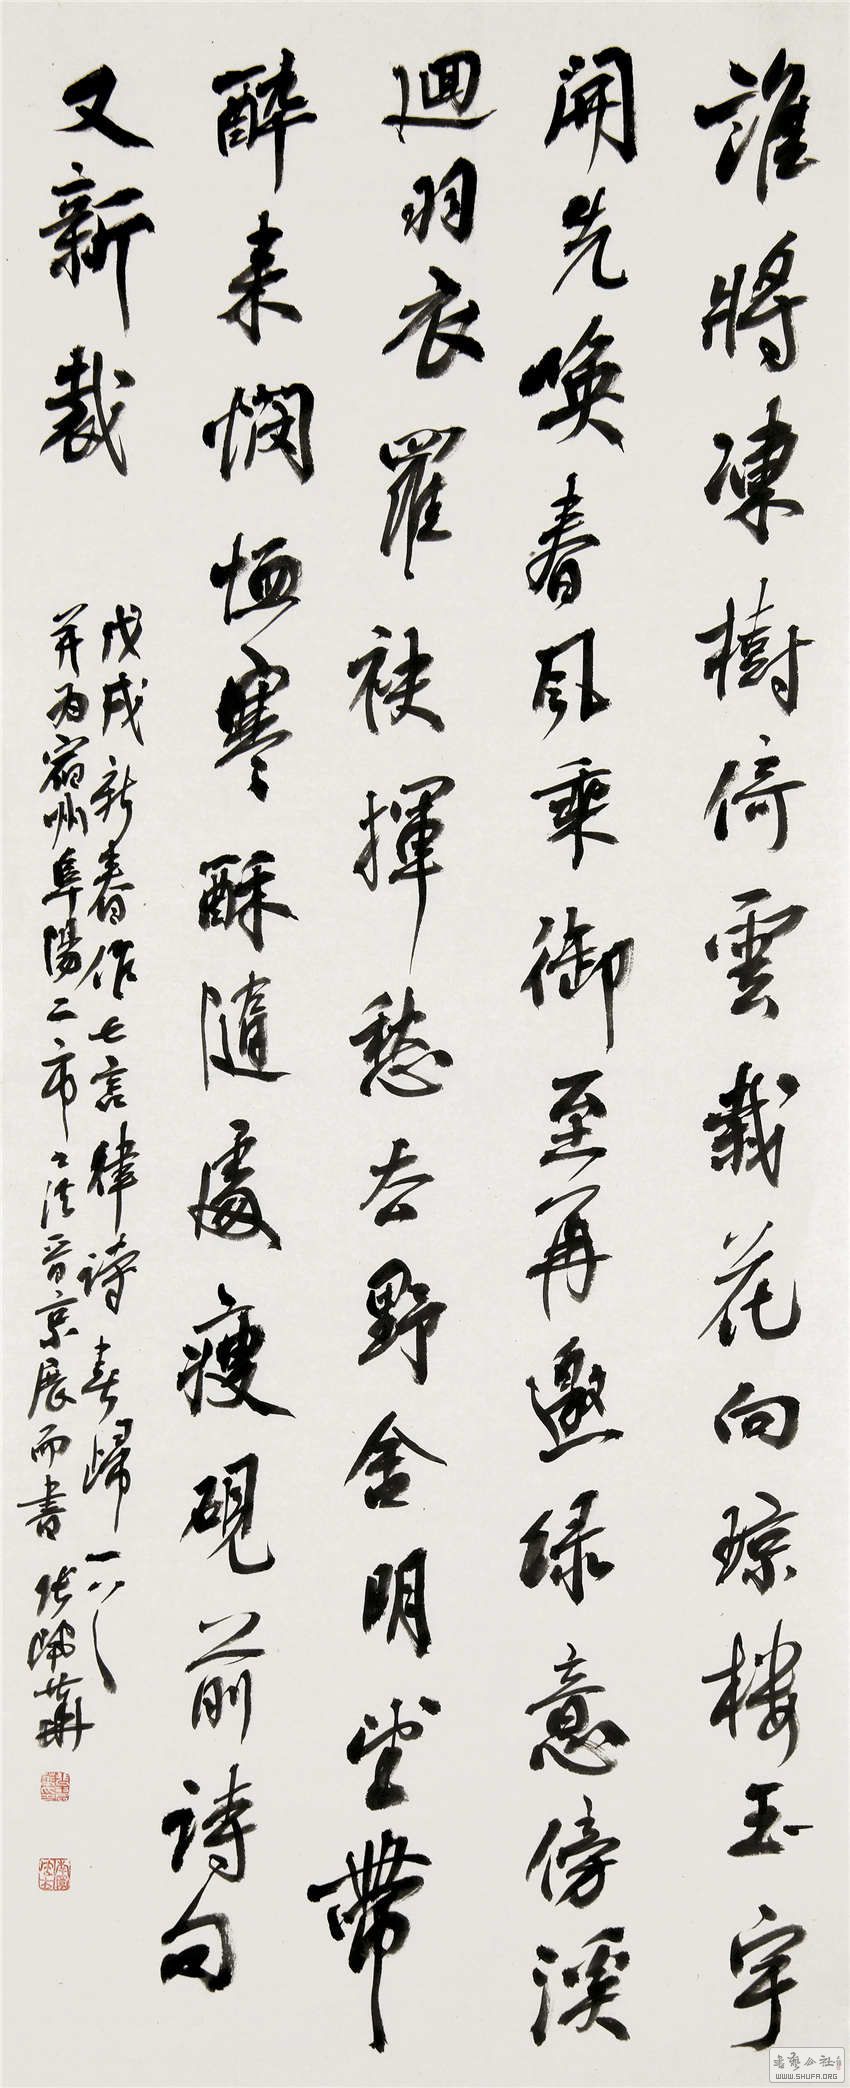 誰將凍樹倚雲栽花向琼樓玉宇
開先喚春風乘御至再邀綠意傍溪
迴羽衣羅袂揮愁去野舍明堂帶
醉來憫恤寒酥隨處瘦硯前詩句
又新裁
戊戌新春作七言律詩春歸一
并為宿州阜陽二市書法晉京展而書
書艺公社
WWW.SHUFA.ORG